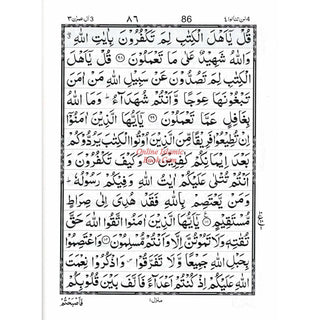 لن تنالوا ٤ ٨٦ 86 اٰل عمرٰن ٣
قُلْ يٰۤاَهْلَ الْكِتٰبِ لِمَ تَكْفُرُوْنَ بِاٰيٰتِ اللّٰهِ
وَاللّٰهُ شَهِيْدٌ عَلٰى مَا تَعْمَلُوْنَ ۝٩٨ قُلْ يٰۤاَهْلَ
الْكِتٰبِ لِمَ تَصُدُّوْنَ عَنْ سَبِيْلِ اللّٰهِ مَنْ اٰمَنَ
تَبْغُوْنَهَا عِوَجًا وَّاَنْتُمْ شُهَدَآءُ ؕ وَمَا اللّٰهُ
بِغَافِلٍ عَمَّا تَعْمَلُوْنَ ۝٩٩ يٰۤاَيُّهَا الَّذِيْنَ اٰمَنُوْۤا
اِنْ تُطِيْعُوْا فَرِيْقًا مِّنَ الَّذِيْنَ اُوْتُوا الْكِتٰبَ يَرُدُّوْكُمْ
بَعْدَ اِيْمَانِكُمْ كٰفِرِيْنَ ۝١٠٠ وَكَيْفَ تَكْفُرُوْنَ وَ
اَنْتُمْ تُتْلٰى عَلَيْكُمْ اٰيٰتُ اللّٰهِ وَفِيْكُمْ رَسُوْلُهٗ ؕ
وَمَنْ يَّعْتَصِمْ بِاللّٰهِ فَقَدْ هُدِيَ اِلٰى صِرَاطٍ
مُّسْتَقِيْمٍ ۝١٠١ يٰۤاَيُّهَا الَّذِيْنَ اٰمَنُوا اتَّقُوا اللّٰهَ حَقَّ
تُقٰتِهٖ وَلَا تَمُوْتُنَّ اِلَّا وَاَنْتُمْ مُّسْلِمُوْنَ ۝١٠٢ وَاعْتَصِمُوْا
بِحَبْلِ اللّٰهِ جَمِيْعًا وَّلَا تَفَرَّقُوْا ۪ وَاذْكُرُوْا نِعْمَتَ
اللّٰهِ عَلَيْكُمْ اِذْ كُنْتُمْ اَعْدَآءً فَاَلَّفَ بَيْنَ قُلُوْبِكُمْ
منزل ١ فَاَصْبَحْتُمْ
Online Islamic